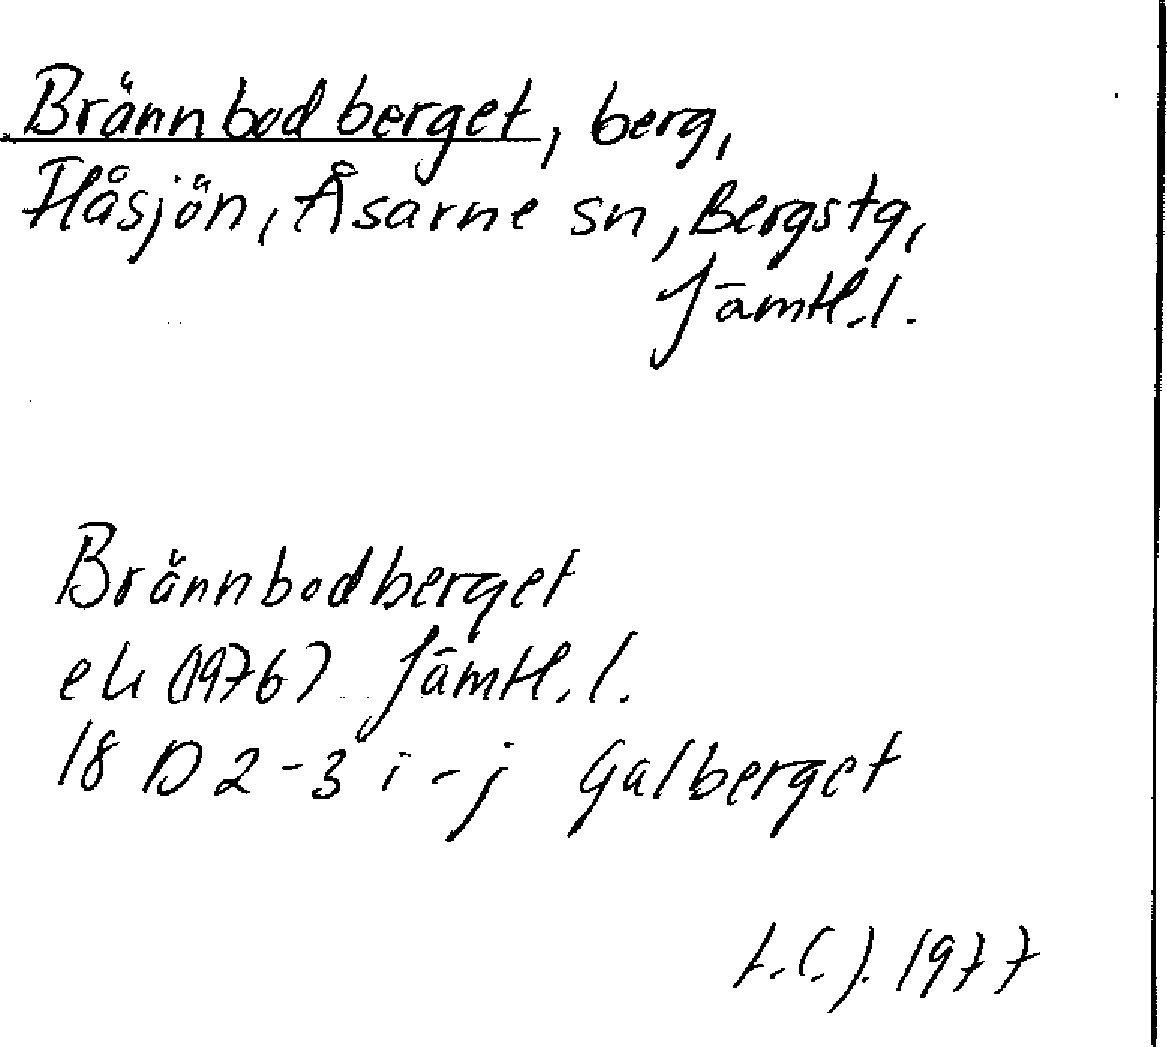 Brännbodberget, berg,
Flåsjön, Åsarne sn, Bergstg,
Jämtl.l.
Brännbodberget
ek (1976) Jämtl.l.
18 D 2-3 i-j Galberget
1977